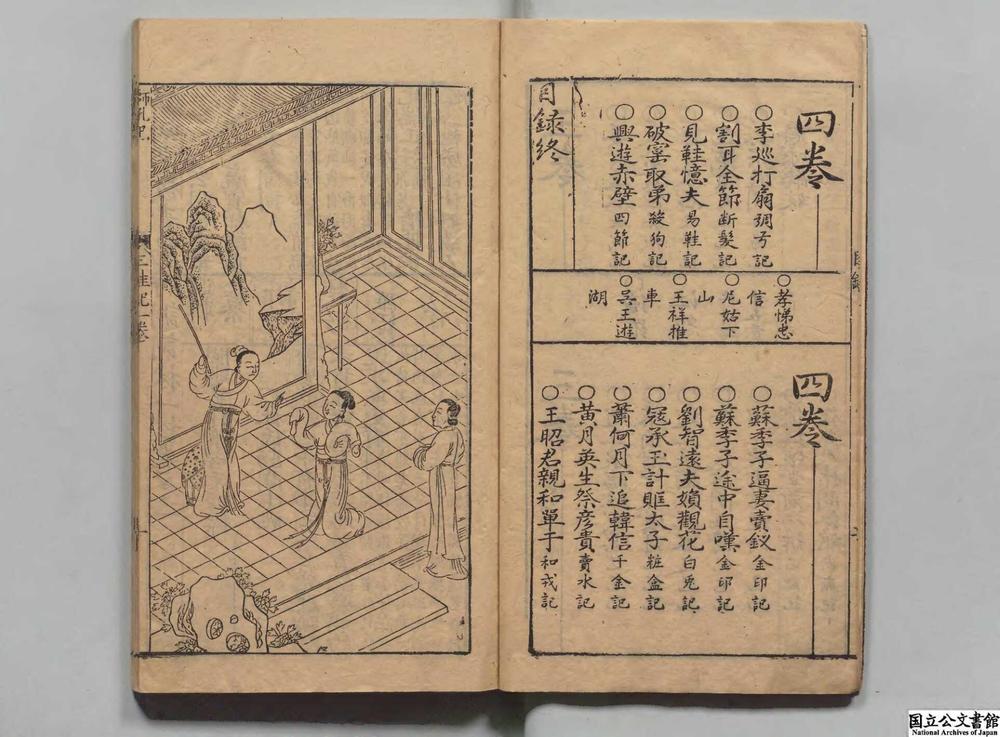 四卷
○李巡打扇 琱弓記
○割耳全節 断髮記
○見鞋憶夫 易鞋記
○破窑取弟 殺狗記
○興遊赤壁 四節記
目錄終
○孝悌忠信
○尼姑下山
○王祥推車
○吳王遊湖
四卷
○蘇季子逼妻賣釵 金印記
○蘇季子途中自嘆 金印記
○劉智遠夫婦觀花 白兎記
○冦承玉計賍太子 粧盒記
○蕭何月下追韓信 千金記
○黄月英生祭彦貴 賣水記
○王昭君親和單于 和戎記
目錄
三桂記一卷
国立公文書館
National Archives of Japan